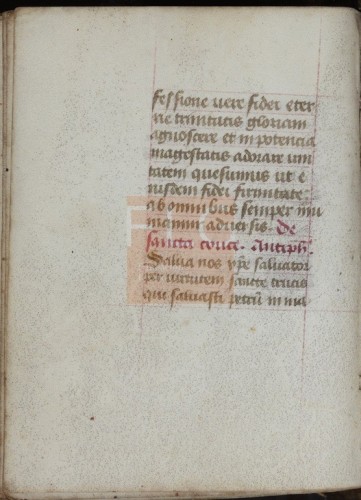 fessione uere fidei eter
ne trinitatis gloriam
agnoscere et in potencia
magestatis adorare uni
tatem quesumus ut e
iusdem fidei firmitate
ab omnibus semper mu
niamur aduersis. De
sancta cruce. Antiph.
Salua nos xpe saluator
per uirtutem sancte crucis
qui saluasti petrū in ma